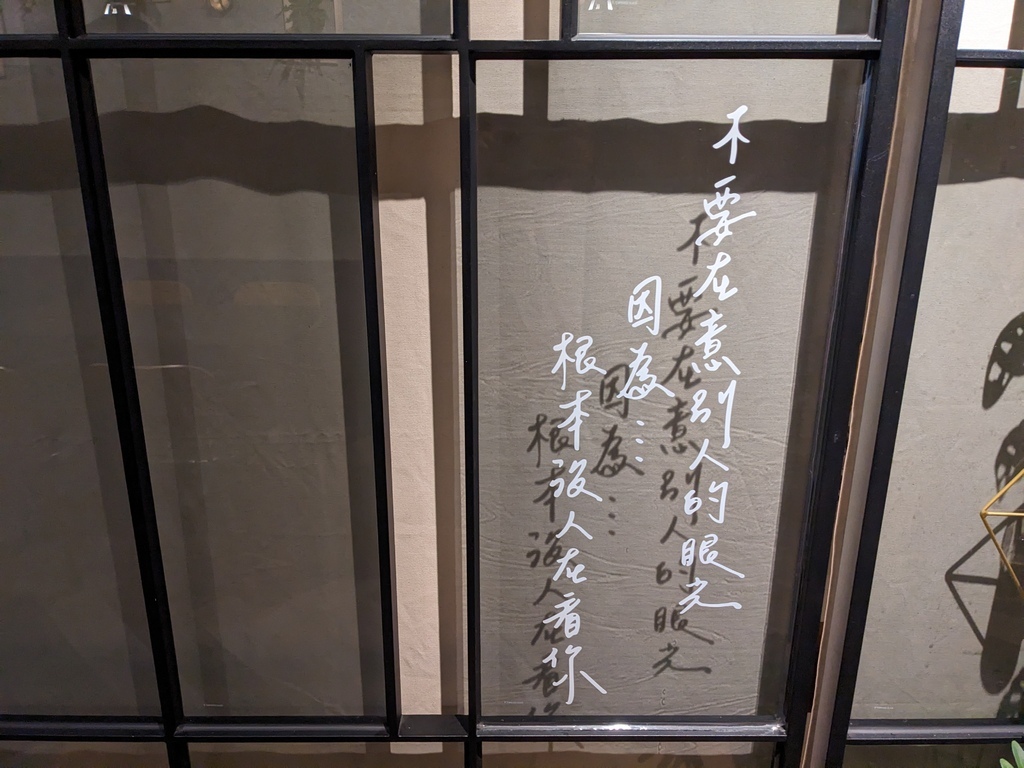 不要在意別人的眼光
因為……
根本沒人在看你